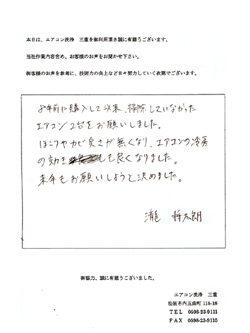 本日は、エアコン洗浄 三重を御利用頂き誠に有難うございます。
当社作業内容含め、お客様のお声をお聞かせ下さい。
御客様のお声を参考に、技術力の向上など日々努力していく次第でございます。
8年前に購入して以来、掃除していなかった
エアコン2台をお願いしました。
ほこりやカビ臭さが無くなり、エアコンの冷房
の効きも良くなりました。
来年もお願いしようと決めました。
瀧 将太朗
御協力、誠に有難うございました。
エアコン洗浄 三重
松阪市内五曲町115-19
TEL 0598-23-9131
FAX 0598-23-9135